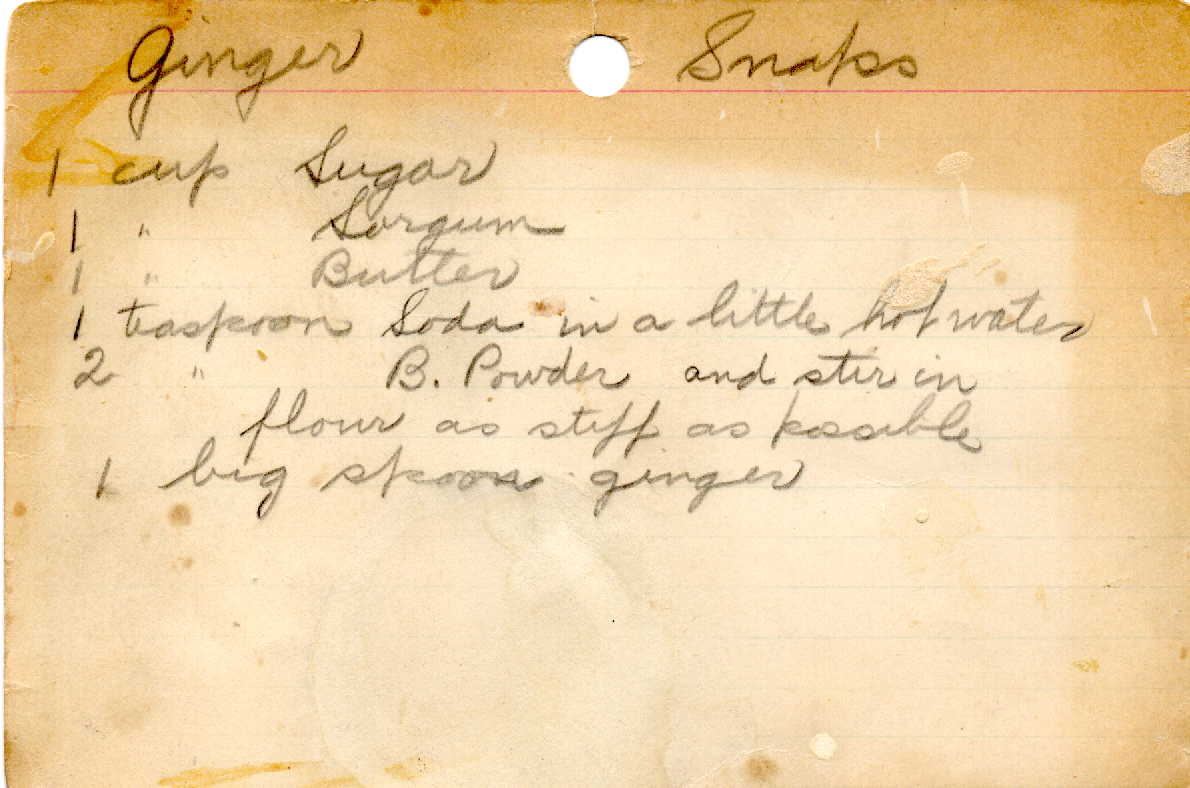 Ginger Snaps
1 cup Sugar
1 " Sorgum
1 " Butter
1 teaspoon Soda in a little hot water
2 " B. Powder and stir in
flour as stiff as possible
1 big spoon ginger